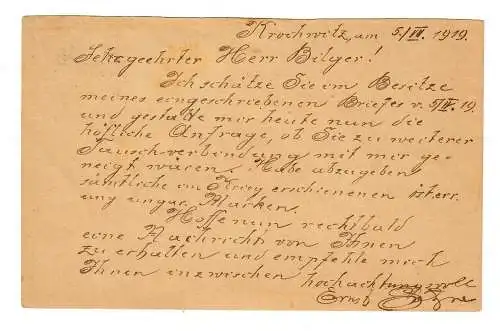 Krochwitz, am 5/IV. 1919.
Sehrgeehrter Herr Bilger!
Ich schätze Sie im Besitze
meines eingeschriebenen Briefes v. 5/IV. 19.
und gestatte mir heute nun die
höfliche Anfrage, ob Sie zu weiterer
Tauschverbindung mit mir ge-
neigt wären. Habe abzugeben
sämtliche im Krieg erschienenen österr.
ung ungar. Marken.
Hoffe nun recht bald
eine Nachricht von Ihnen
zu erhalten und empfehle mich
Ihnen inzwischen hochachtungsvoll
Ernst